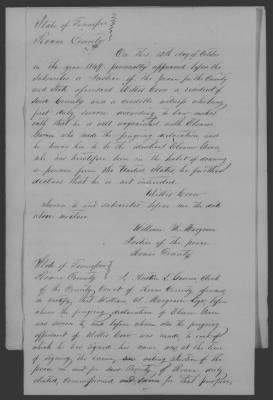 State of Tennessee
Roane County
On this 13th day of October
in the year 1849, personally appeared before the
subscriber a Justice of the peace for the County
and State aforesaid Willis Crow a resident of
said County and a credible witness who being
first duly sworn according to law makes
oath that he is well acquainted with
who made the foregoing declaration and
he knows him to be the identical
who has heretofore been in the habit of drawing
a pension from the United States he further
declares that he is not interested.
Willis Crow
Sworn to and subscribed before me the date
above written
William M.
Justice of the peace
Roane County
State of Tennessee
Roane County I, Clerk
of the County Court of Roane County aforesaid
do certify that William M. Esqr. before
whom the foregoing declaration of
was sworn to and before whom also the foregoing
affidavit of Willis Crow was made to each of
which he has signed his name was at the time
of signing the same an acting Justice of the
peace in and for said County of Roane duly
elected, commissioned and sworn for that purpose,